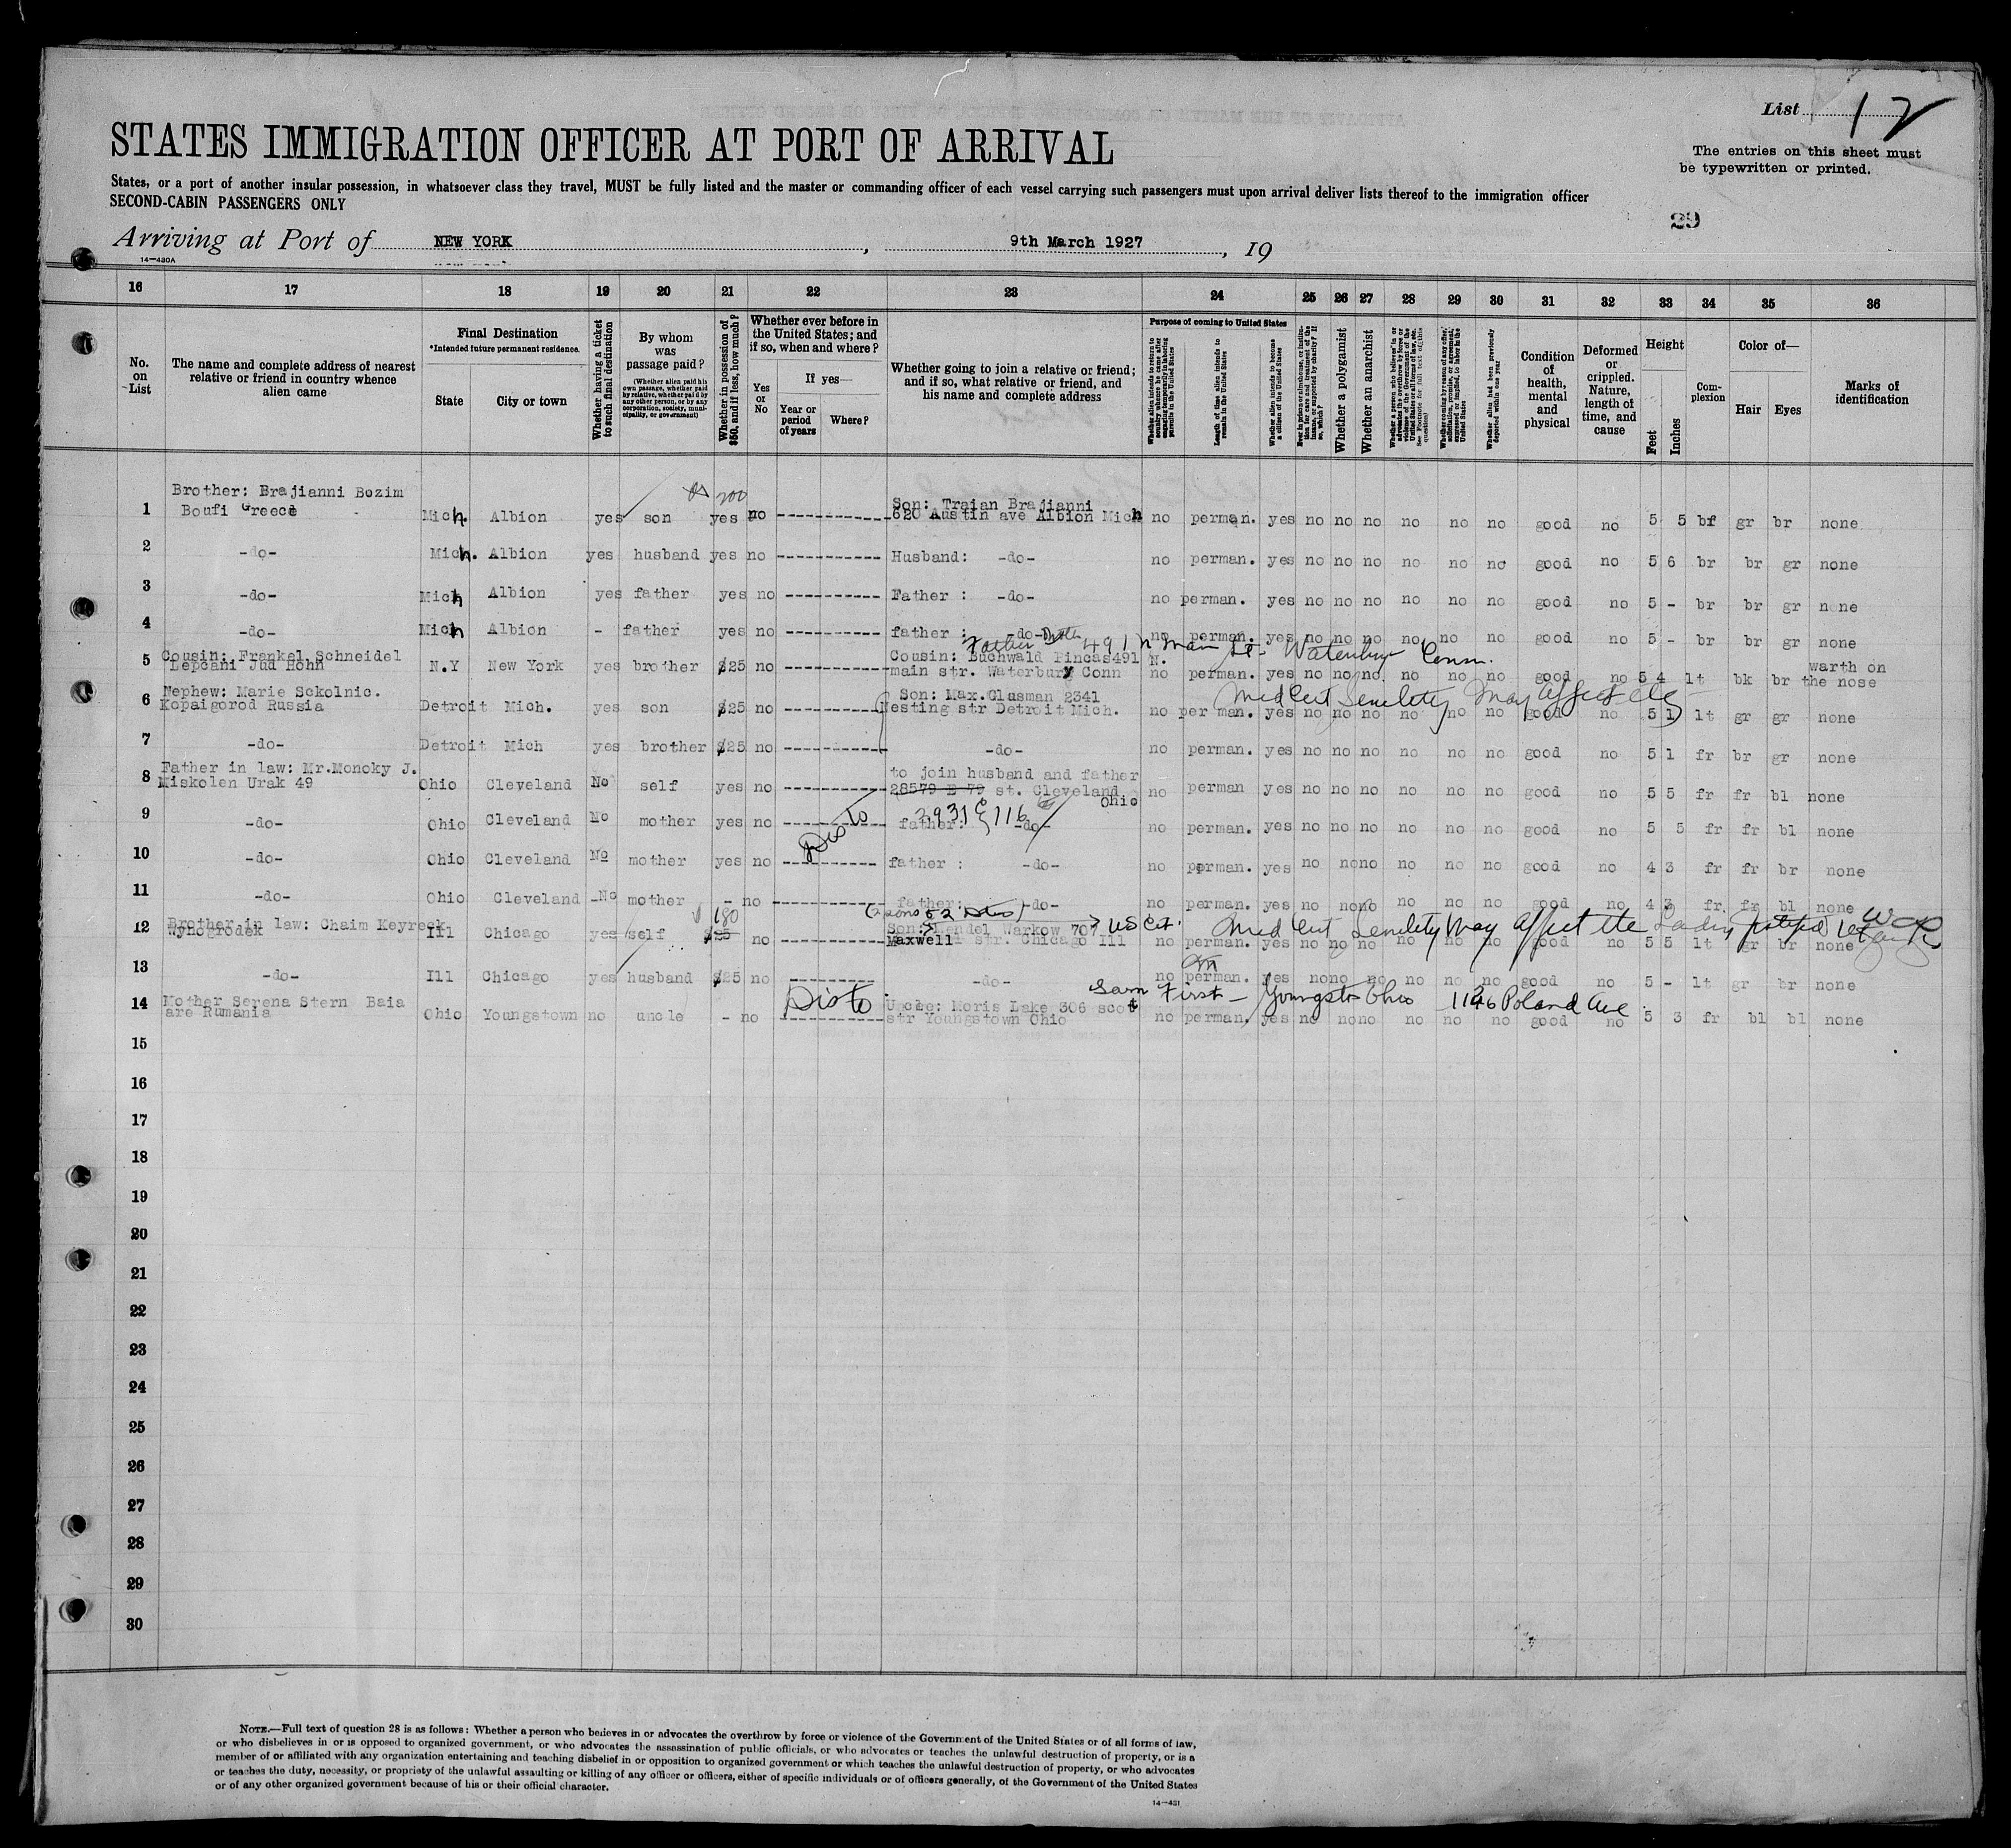 List 12
STATES IMMIGRATION OFFICER AT PORT OF ARRIVAL
The entries on this sheet must
be typewritten or printed.
States, or a port of another insular possession, in whatsoever class they travel, MUST be fully listed and the master or commanding officer of each vessel carrying such passengers must upon arrival deliver lists thereof to the immigration officer
SECOND-CABIN PASSENGERS ONLY
29
Arriving at Port of NEW YORK , 9th March 1927 , 19
14—430A
16 17 18 19 20 21 22 23 24 25 26 27 28 29 30 31 32 33 34 35 36
No. on List
The name and complete address of nearest relative or friend in country whence alien came
Final Destination
*Intended future permanent residence.
State
City or town
Whether having a ticket to such final destination
By whom was passage paid?
(Whether alien paid his own passage, whether paid by relative, whether paid by any other person, or by any corporation, society, municipality, or government)
Whether in possession of $50, and if less, how much?
Whether ever before in the United States; and if so, when and where?
Yes or No
If yes—
Year or period of years
Where?
Whether going to join a relative or friend; and if so, what relative or friend, and his name and complete address
Purpose of coming to United States
Whether alien intends to return to country whence he came after engaging temporarily in laboring pursuits in the United States
Length of time alien intends to remain in the United States
Whether alien intends to become a citizen of the United States
Ever in prison or almshouse, or institution for care and treatment of the insane, or supported by charity? If so, which?
Whether a polygamist
Whether an anarchist
Whether alien had been previously deported within one year
Condition of health, mental and physical
Deformed or crippled. Nature, length of time, and cause
Height
Feet
Inches
Complexion
Color of—
Hair
Eyes
Marks of identification
200
1 Brother: Brajianni Bozim
Boufi Greece Mich. Albion yes son yes no Son: Traian Brajianni
620 Austin ave Albion Mich no perman. yes no no no no no no good no 5 5 br gr br none
2 -do- Mich. Albion yes husband yes no Husband: -do- no perman. yes no no no no no no good no 5 6 br br gr none
3 -do- Mich Albion yes father yes no Father : -do- no perman. yes no no no no no no good no 5 - br br gr none
4 -do- Mich Albion - father yes no father : -do- no perman. yes no no no no no no good no 5 - br br gr none
Father 491 N Main St. Waterbury Conn.
5 Cousin: Frankel Schneidel
Lepcani Jud Hohn N.Y New York yes brother $25 no Cousin: Buchwald Pincas 491 N.
main str. Waterbury Conn no perman. yes no no no no no no good no 5 4 lt bk br warth on
the nose
Med Cert Senility May affect
6 Nephew: Marie Sckolnic.
Kopaigorod Russia Detroit Mich. yes son $25 no Son: Max.Clusman 2341
Nesting str Detroit Mich. no per man. yes no no no no no no good no 5 1 lt gr gr none
7 -do- Detroit Mich yes brother $25 no -do- no perman. yes no no no no no no good no 5 1 fr br gr none
8 Father in law: Mr.Monoky J.
Miskolen Urak 49 Ohio Cleveland No self yes no to join husband and father
28579 E 79 st. Cleveland Ohio no perman yes no no no no no no good no 5 5 fr fr bl none
2931 E 116
9 -do- Ohio Cleveland No mother yes no father: -do- no perman. yes no no no no no no good no 5 5 fr fr bl none
10 -do- Ohio Cleveland No mother yes no father : -do- no perman. yes no no no no no no good no 4 3 fr fr br none
11 -do- Ohio Cleveland No mother - no father: -do- no perman. yes no no no no no no good no 4 3 fr fr bl none
180
US Cit. Med Cert Senility May affect the
12 Brother in law: Chaim Keyreck
Nynogrodek Ill Chicago yes self no Son: Mendel Warkow 707
Maxwell str. Chicago Ill no perman. yes no no no no no no good no 5 5 lt gr br none
13 -do- Ill Chicago yes husband $25 no -do- no perman. yes no no no no no no good no 5 - lt gr br none
Sam First - Youngsto Ohio 1146 Poland Ave
14 Mother Serena Stern Baia
are Rumania Ohio Youngstown no uncle - no Uncle: Moris Lake 306 scott
str Youngstown Ohio no perman. yes no no no no no no good no 5 3 fr bl bl none
15
16
17
18
19
20
21
22
23
24
25
26
27
28
29
30
NOTE.—Full text of question 28 is as follows: Whether a person who believes in or advocates the overthrow by force or violence of the Government of the United States or of all forms of law,
or who disbelieves in or is opposed to organized government, or who advocates the assassination of public officials, or who advocates or teaches the unlawful destruction of property, or is a
member of or affiliated with any organization entertaining and teaching disbelief in or opposition to organized government or which teaches the unlawful destruction of property, or who advocates
or teaches the duty, necessity, or propriety of the unlawful assaulting or killing of any officer or officers, either of specific individuals or of officers generally, of the Government of the United States
or of any other organized government because of his or their official character.
14—431